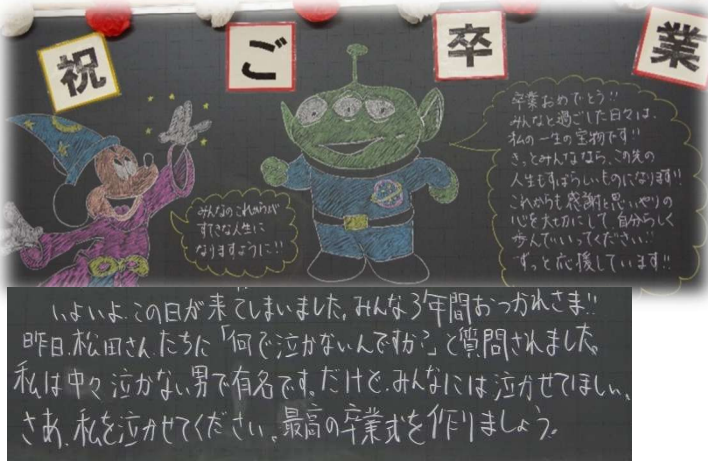 祝ご卒業
みんなのこれからが
すてきな人生に
なりますように!!
卒業おめでとう!!
みんなと過ごした日々は、
私の一生の宝物です!!
きっとみんななら、この先の
人生もすばらしいものになります!!
これからも感謝と思いやりの
心を大切にして、自分らしく
歩んでいってください!!
ずっと応援しています!!
いよいよ、この日が来てしまいました。みんな3年間おつかれさま!!
昨日、松田さんたちに「何で泣かないんですか?」と質問されました。
私は中々泣かない男で有名です。だけど、みんなには泣かせてほしい。
さあ、私を泣かせてください。最高の卒業式を作りましょう。